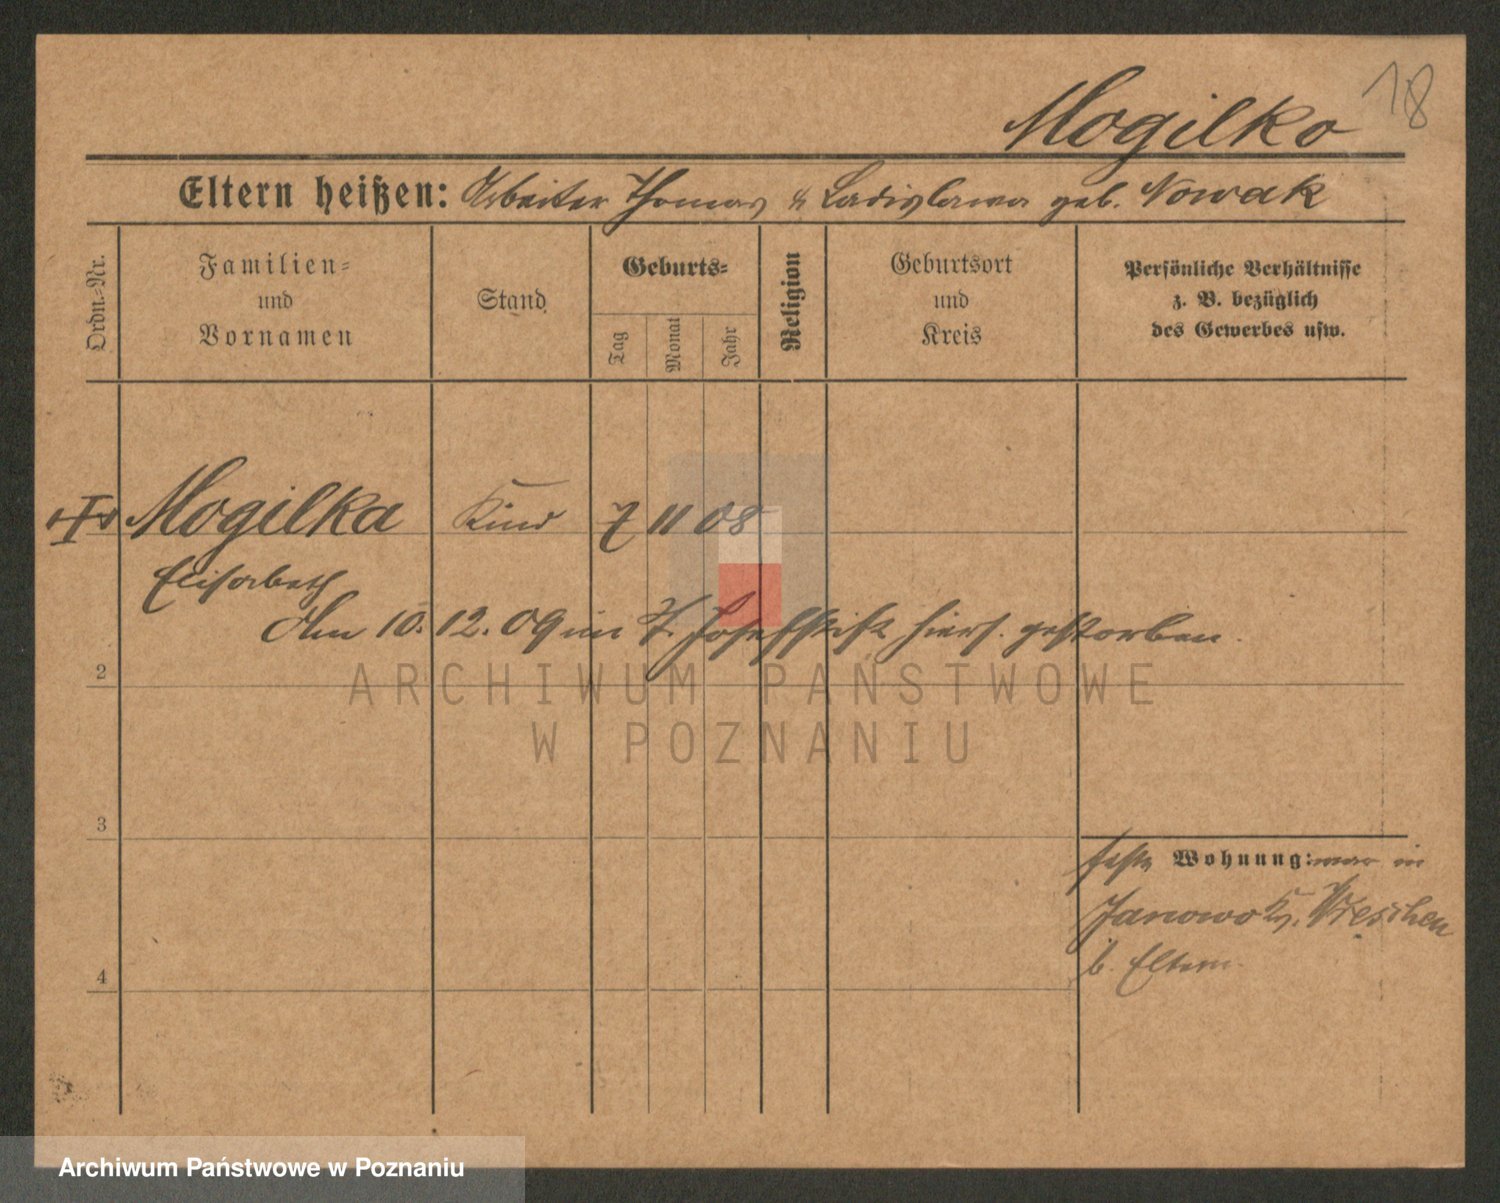 18
Mogilko
Eltern heißen: Arbeiter Thomas u Ladislawa geb. Nowak
Ordn.-Nr.
Familien-
und
Vornamen
Stand
Geburts-
Tag
Monat
Jahr
Religion
Geburtsort
und
Kreis
Persönliche Verhältnisse
z. B. bezüglich
des Gewerbes usw.
Mogilka Kind 7 11 08
Elisabeth
Am 10. 12. 09 im St. Josefstift hiers. gestorben.
2
ARCHIWUM PAŃSTWOWE
W POZNANIU
3
feste Wohnung: war in
Janowo Kr. Wreschen
b. Eltern.
4
Archiwum Państwowe w Poznaniu